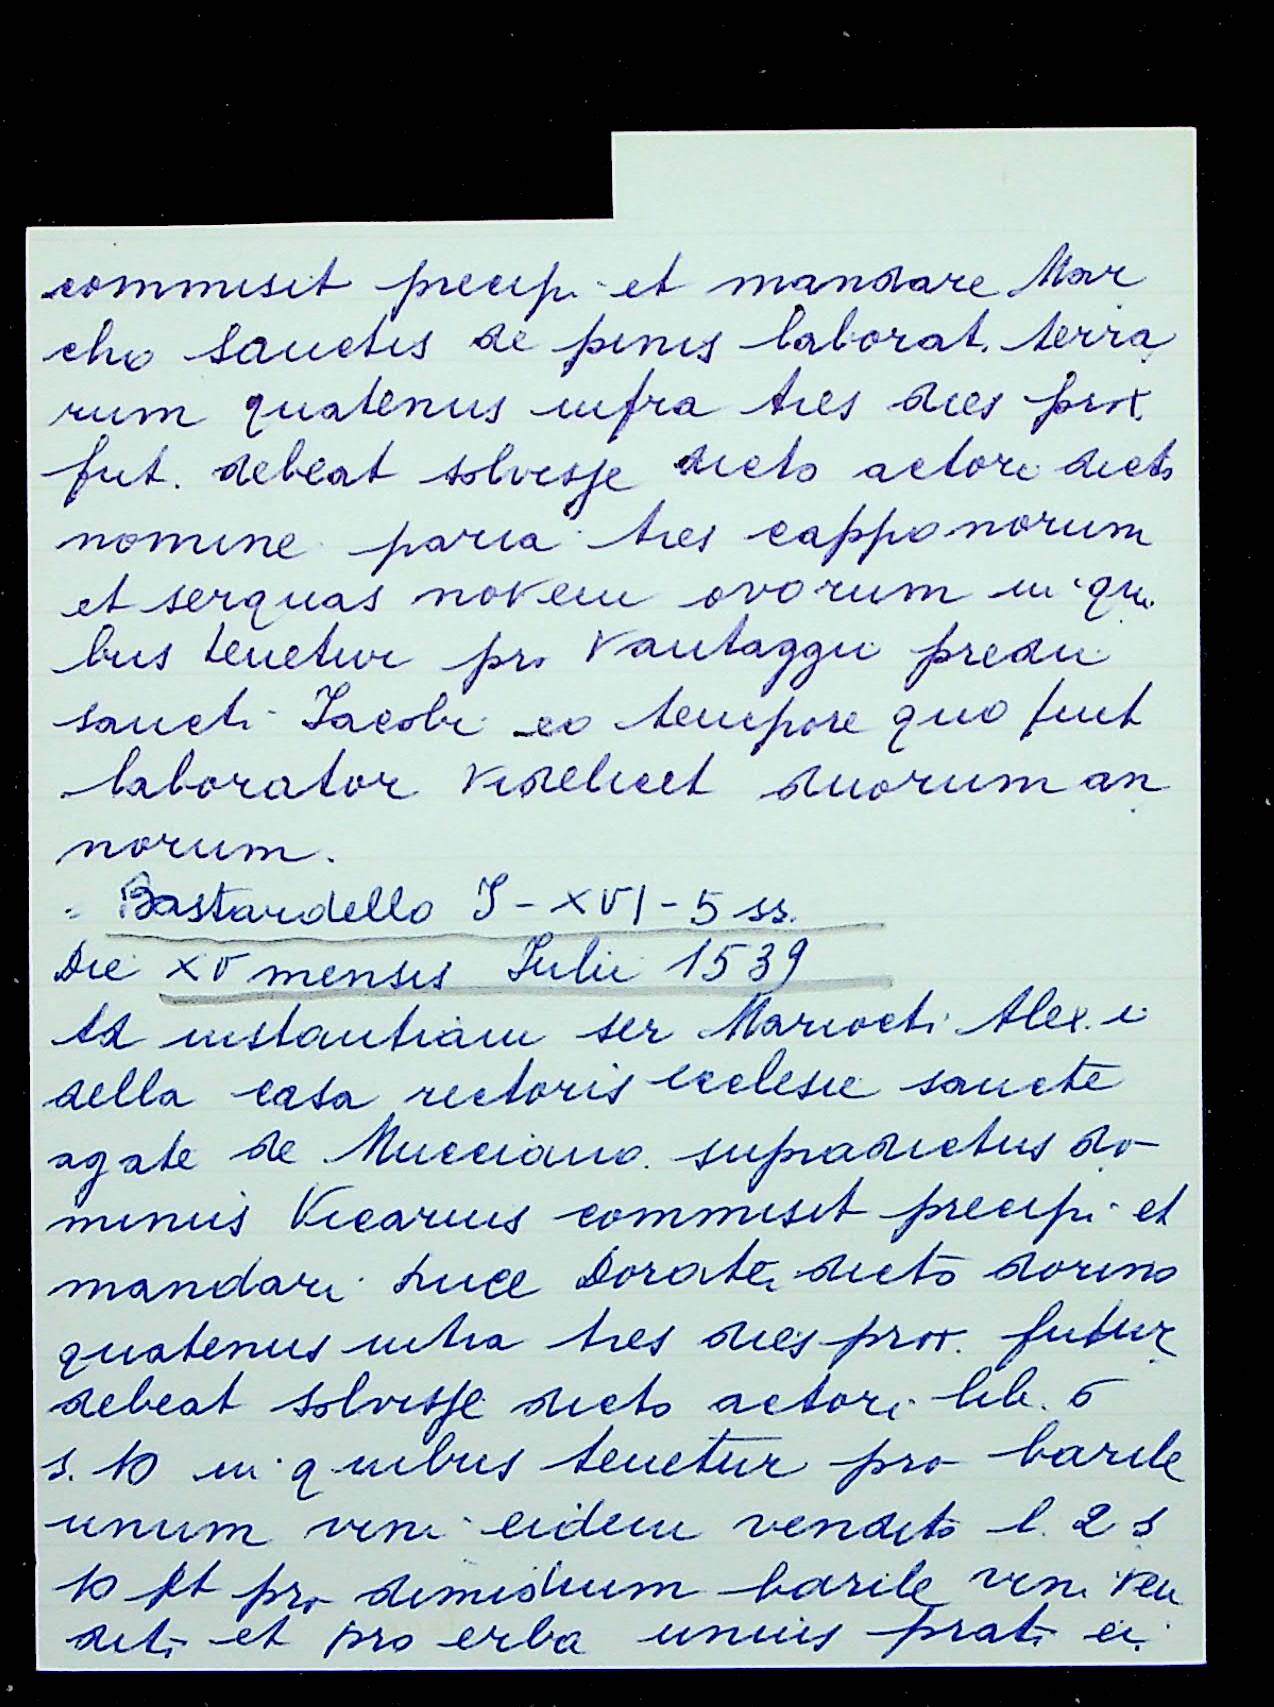 commisit precipi et mandare Mar
cho Sanctis de pinis laborat. terra
rum quatenus infra tres dies prox.
fut. debeat solvisse dicto actori dicto
nomine paria tres capponorum
et serquas novem ovorum in qui
bus tenetur pro vantaggii predii
sancti Iacobi eo tempore quo fuit
laborator videlicet duorum an
norum.
Bastardello I-XVI-5 ss.
Die XV mensis Iulii 1539
Ad instantiam ser Mariocti Alex.i
della casa rectoris ecclesie sancte
agate de Mucciano supradictus do-
minus Vicarius commisit precipi et
mandari Luce Dorati dicto dorino
quatenus infra tres dies prox. futur.
debeat solvisse dicto actori lib. 6
s. 10 in quibus tenetur pro barile
unum vini eidem vendito l. 2 s
10 et pro dimidium barile vini ven
diti et pro erba unius prati ei